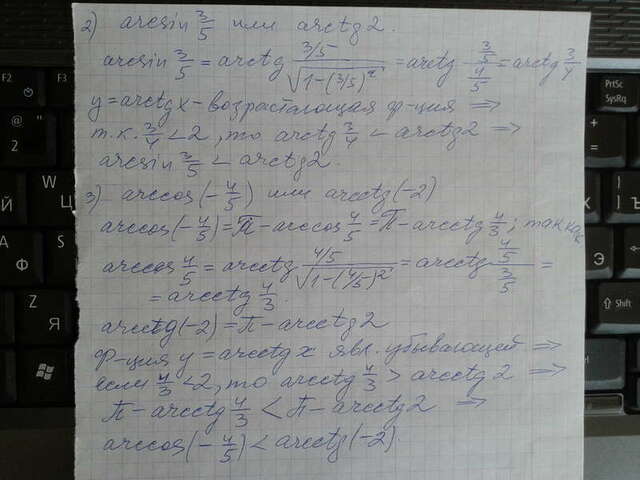 2) arcsin 3/5 или arctg 2.
arcsin 3/5 = arctg (3/5)/√(1-(3/5)²) = arctg (3/5)/(4/5) = arctg 3/4
y = arctg x - возрастающая ф-ция =>
т.к. 3/4 < 2, то arctg 3/4 < arctg 2 =>
arcsin 3/5 < arctg 2.
3) arccos(-4/5) или arcctg(-2)
arccos(-4/5) = π - arccos 4/5 = π - arcctg 4/3; так как
arccos 4/5 = arcctg (4/5)/√(1-(4/5)²) = arcctg (4/5)/(3/5) =
= arcctg 4/3.
arcctg(-2) = π - arcctg 2
ф-ция y = arcctg x явл. убывающей =>
если 4/3 < 2, то arcctg 4/3 > arcctg 2 =>
π - arcctg 4/3 < π - arcctg 2 =>
arccos(-4/5) < arcctg(-2).
F2
@
2
Й
Ф
A
Z
Я
PrtSc
SysRq
+
=
Shift